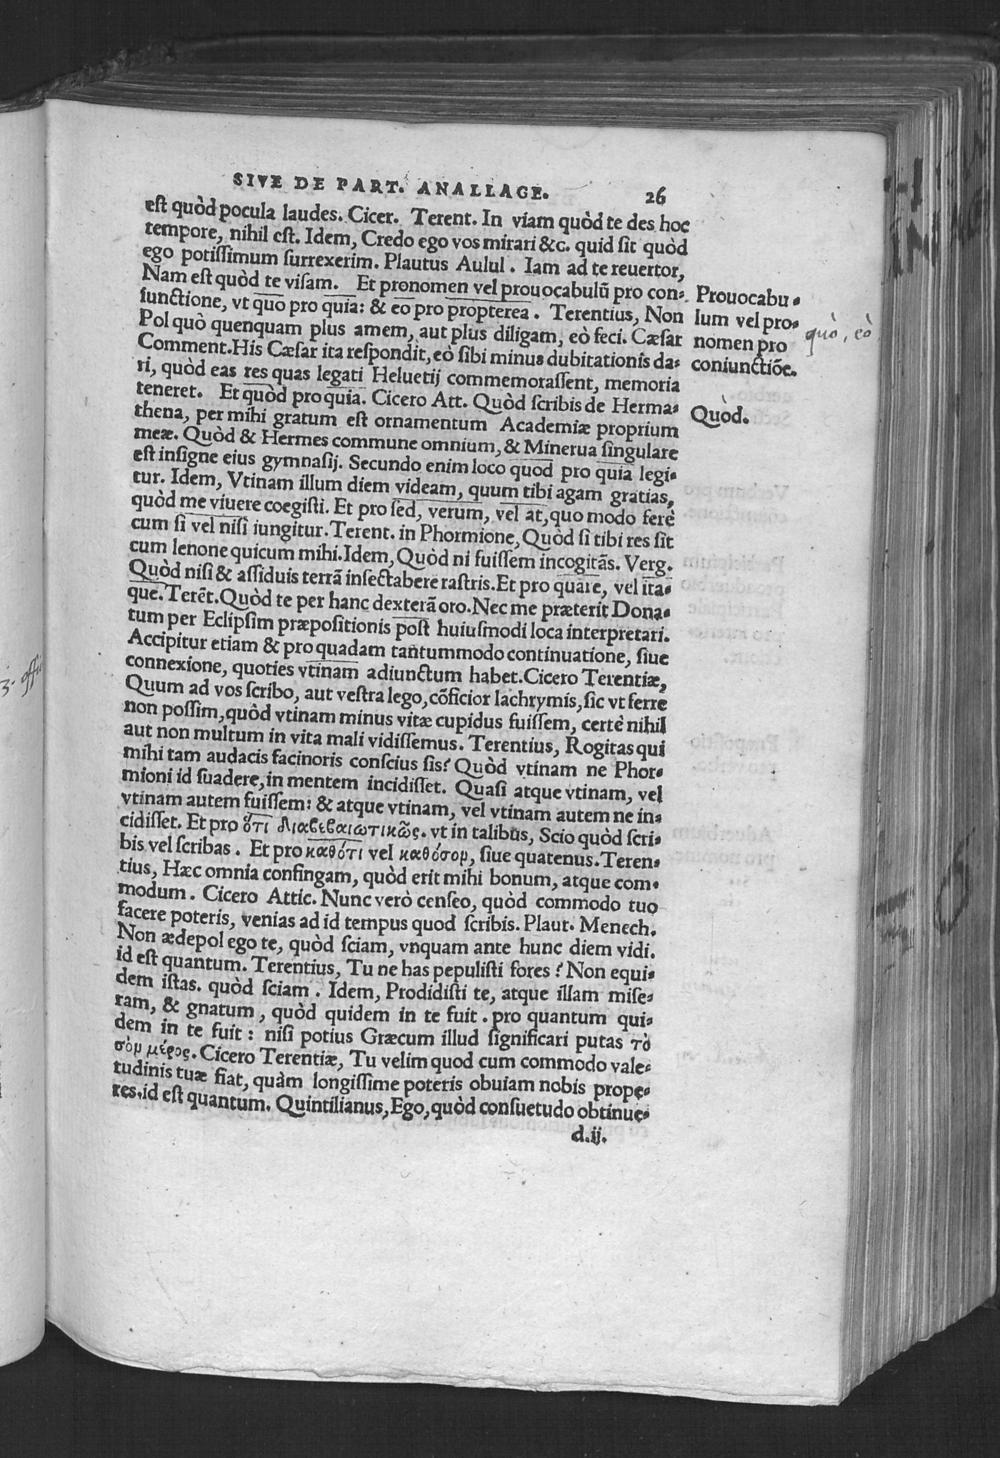 SIVE DE PART. ANALLAGE. 26
est quòd pocula laudes. Cicer. Terent. In viam quòd te des hoc
tempore, nihil est. Idem, Credo ego vos mirari &c. quid sit quòd
ego potissimum surrexerim. Plautus Aulul. Iam ad te reuertor,
Nam est quòd te visam. Et pronomen vel prouocabulū pro con-
iunctione, vt quo pro quia: & eo pro propterea. Terentius, Non
Pol quò quenquam plus amem, aut plus diligam, eò feci. Cæsar
Comment. His Cæsar ita respondit, eò sibi minus dubitationis da-
ri, quòd eas res quas legati Heluetij commemorassent, memoria
teneret. Et quòd pro quia. Cicero Att. Quòd scribis de Herma-
thena, per mihi gratum est ornamentum Academiæ proprium
meæ. Quòd & Hermes commune omnium, & Minerua singulare
est insigne eius gymnasij. Secundo enim loco quod pro quia legi-
tur. Idem, Vtinam illum diem videam, quum tibi agam gratias,
quòd me viuere coegisti. Et pro sed, verum, vel at, quo modo ferè
cum si vel nisi iungitur. Terent. in Phormione, Quòd si tibi res sit
cum lenone quicum mihi. Idem, Quòd ni fuissem incogitās. Verg.
Quòd nisi & assiduis terrā insectabere rastris. Et pro quare, vel ita-
que. Terēt. Quòd te per hanc dexterā oro. Nec me præterit Dona-
tum per Eclipsim præpositionis post huiusmodi loca interpretari.
Accipitur etiam & pro quadam tantummodo continuatione, siue
connexione, quoties vtinam adiunctum habet. Cicero Terentiæ,
Quum ad vos scribo, aut vestra lego, cōficior lachrymis, sic vt ferre
non possim, quòd vtinam minus vitæ cupidus fuissem, certè nihil
aut non multum in vita mali vidissemus. Terentius, Rogitas qui
mihi tam audacis facinoris conscius sis? Quòd vtinam ne Phor-
mioni id suadere, in mentem incidisset. Quasi atque vtinam, vel
vtinam autem fuissem: & atque vtinam, vel vtinam autem ne in-
cidisset. Et pro ὅτι διαβεβαιωτικῶς. vt in talibus, Scio quòd scri-
bis vel scribas. Et pro καθότι vel καθόσον, siue quatenus. Teren-
tius, Hæc omnia confingam, quòd erit mihi bonum, atque com-
modum. Cicero Attic. Nunc verò censeo, quòd commodo tuo
facere poteris, venias ad id tempus quod scribis. Plaut. Menech.
Non ædepol ego te, quòd sciam, vnquam ante hunc diem vidi.
id est quantum. Terentius, Tu ne has pepulisti fores? Non equi-
dem istas. quòd sciam. Idem, Prodidisti te, atque illam mise-
ram, & gnatum, quòd quidem in te fuit. pro quantum qui-
dem in te fuit: nisi potius Græcum illud significari putas τὸ
σὸν μέρος. Cicero Terentiæ, Tu velim quod cum commodo vale-
tudinis tuæ fiat, quàm longissime poteris obuiam nobis prope-
res. id est quantum. Quintilianus, Ego, quòd consuetudo obtinue-
d.ij.
Prouocabu-
lum vel pro-
nomen pro
coniunctiōe.
Quòd.
quò, eò